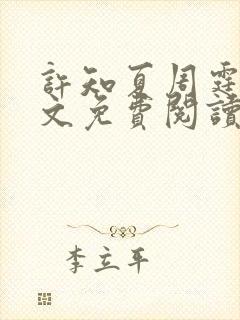 許知夏周霆
文免費閱讀
李立平